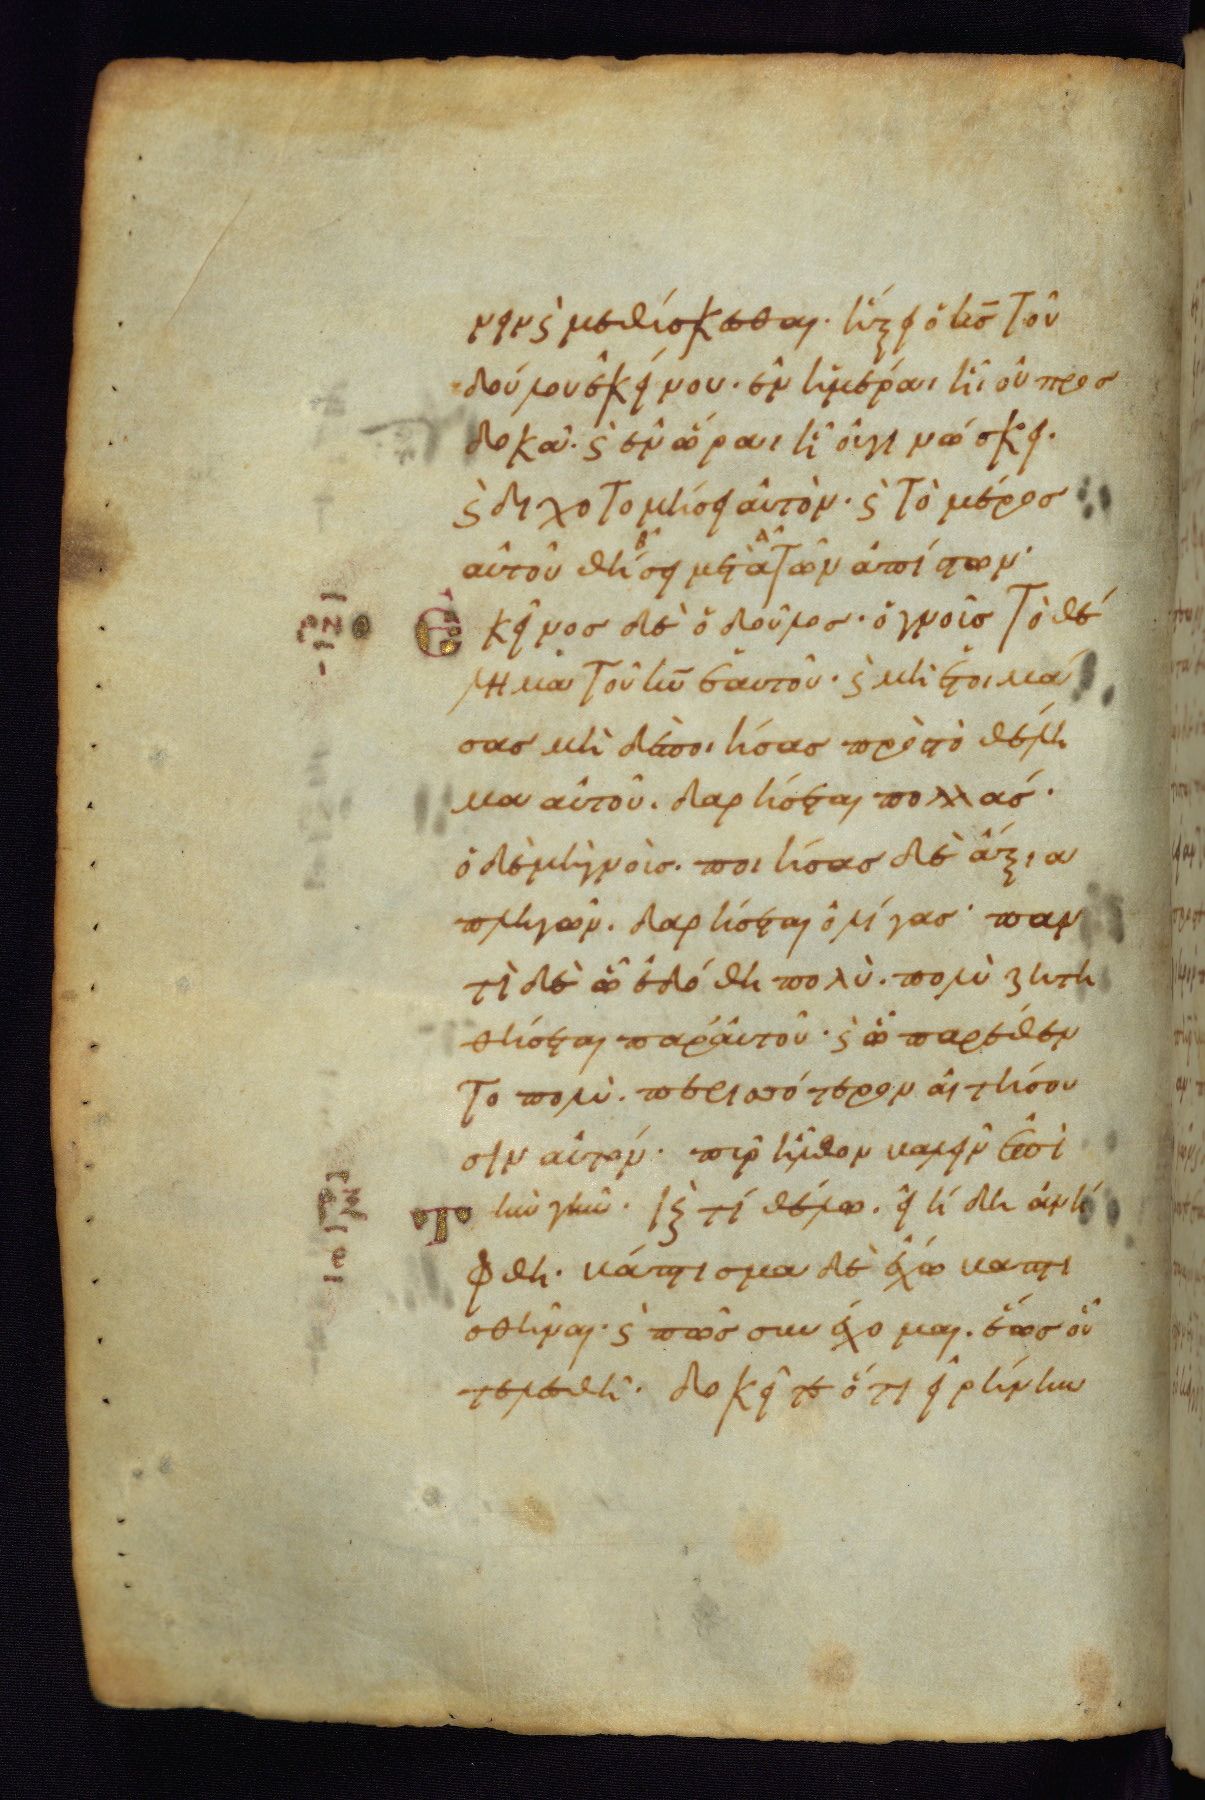 νειν ϗ μεθύσκεσθαι· ἥξει ὁ κ̅ς̅ τοῦ
δούλου ἐκείνου· ἐν ἡμέραι ᾗ οὐ προσ
δοκᾶ· ϗ ἐν ὥραι ᾗ οὐ γινώσκει·
ϗ διχοτομήσει αὐτὸν· ϗ τὸ μέρος
αὐτοῦ θήσει μετὰ τῶν ἀπίστων·
Ἐκεῖνος δὲ ὁ δοῦλος· ὁ γνοὺς τὸ θέ
λημα τοῦ κ̅υ̅ ἑαυτοῦ· ϗ μὴ ἑτοιμά
σας μὴ δὲ ποιήσας πρὸς τὸ θέλη
μα αὐτοῦ· δαρήσεται πολλάς·
ὁ δὲ μὴ γνοὺς· ποιήσας δὲ ἄξια
πληγῶν· δαρήσεται ὀλίγας· παν
τὶ δὲ ᾧ ἐδόθη πολὺ· πολὺ ζητη
θήσεται παρ' αὐτοῦ· ϗ ᾧ παρέθεν
το πολὺ· περισσότερον αἰτήσου
σιν αὐτόν· πῦρ ἦλθον βαλεῖν ἐπὶ
Τὴν γῆν· ϗ τί θέλω· εἰ ἤδη ἀνή
φθη· βάπτισμα δὲ ἔχω βαπτι
σθῆναι· ϗ πῶς συνέχομαι· ἕως οὗ
τελεσθῇ· δοκεῖτε ὅτι εἰρήνην